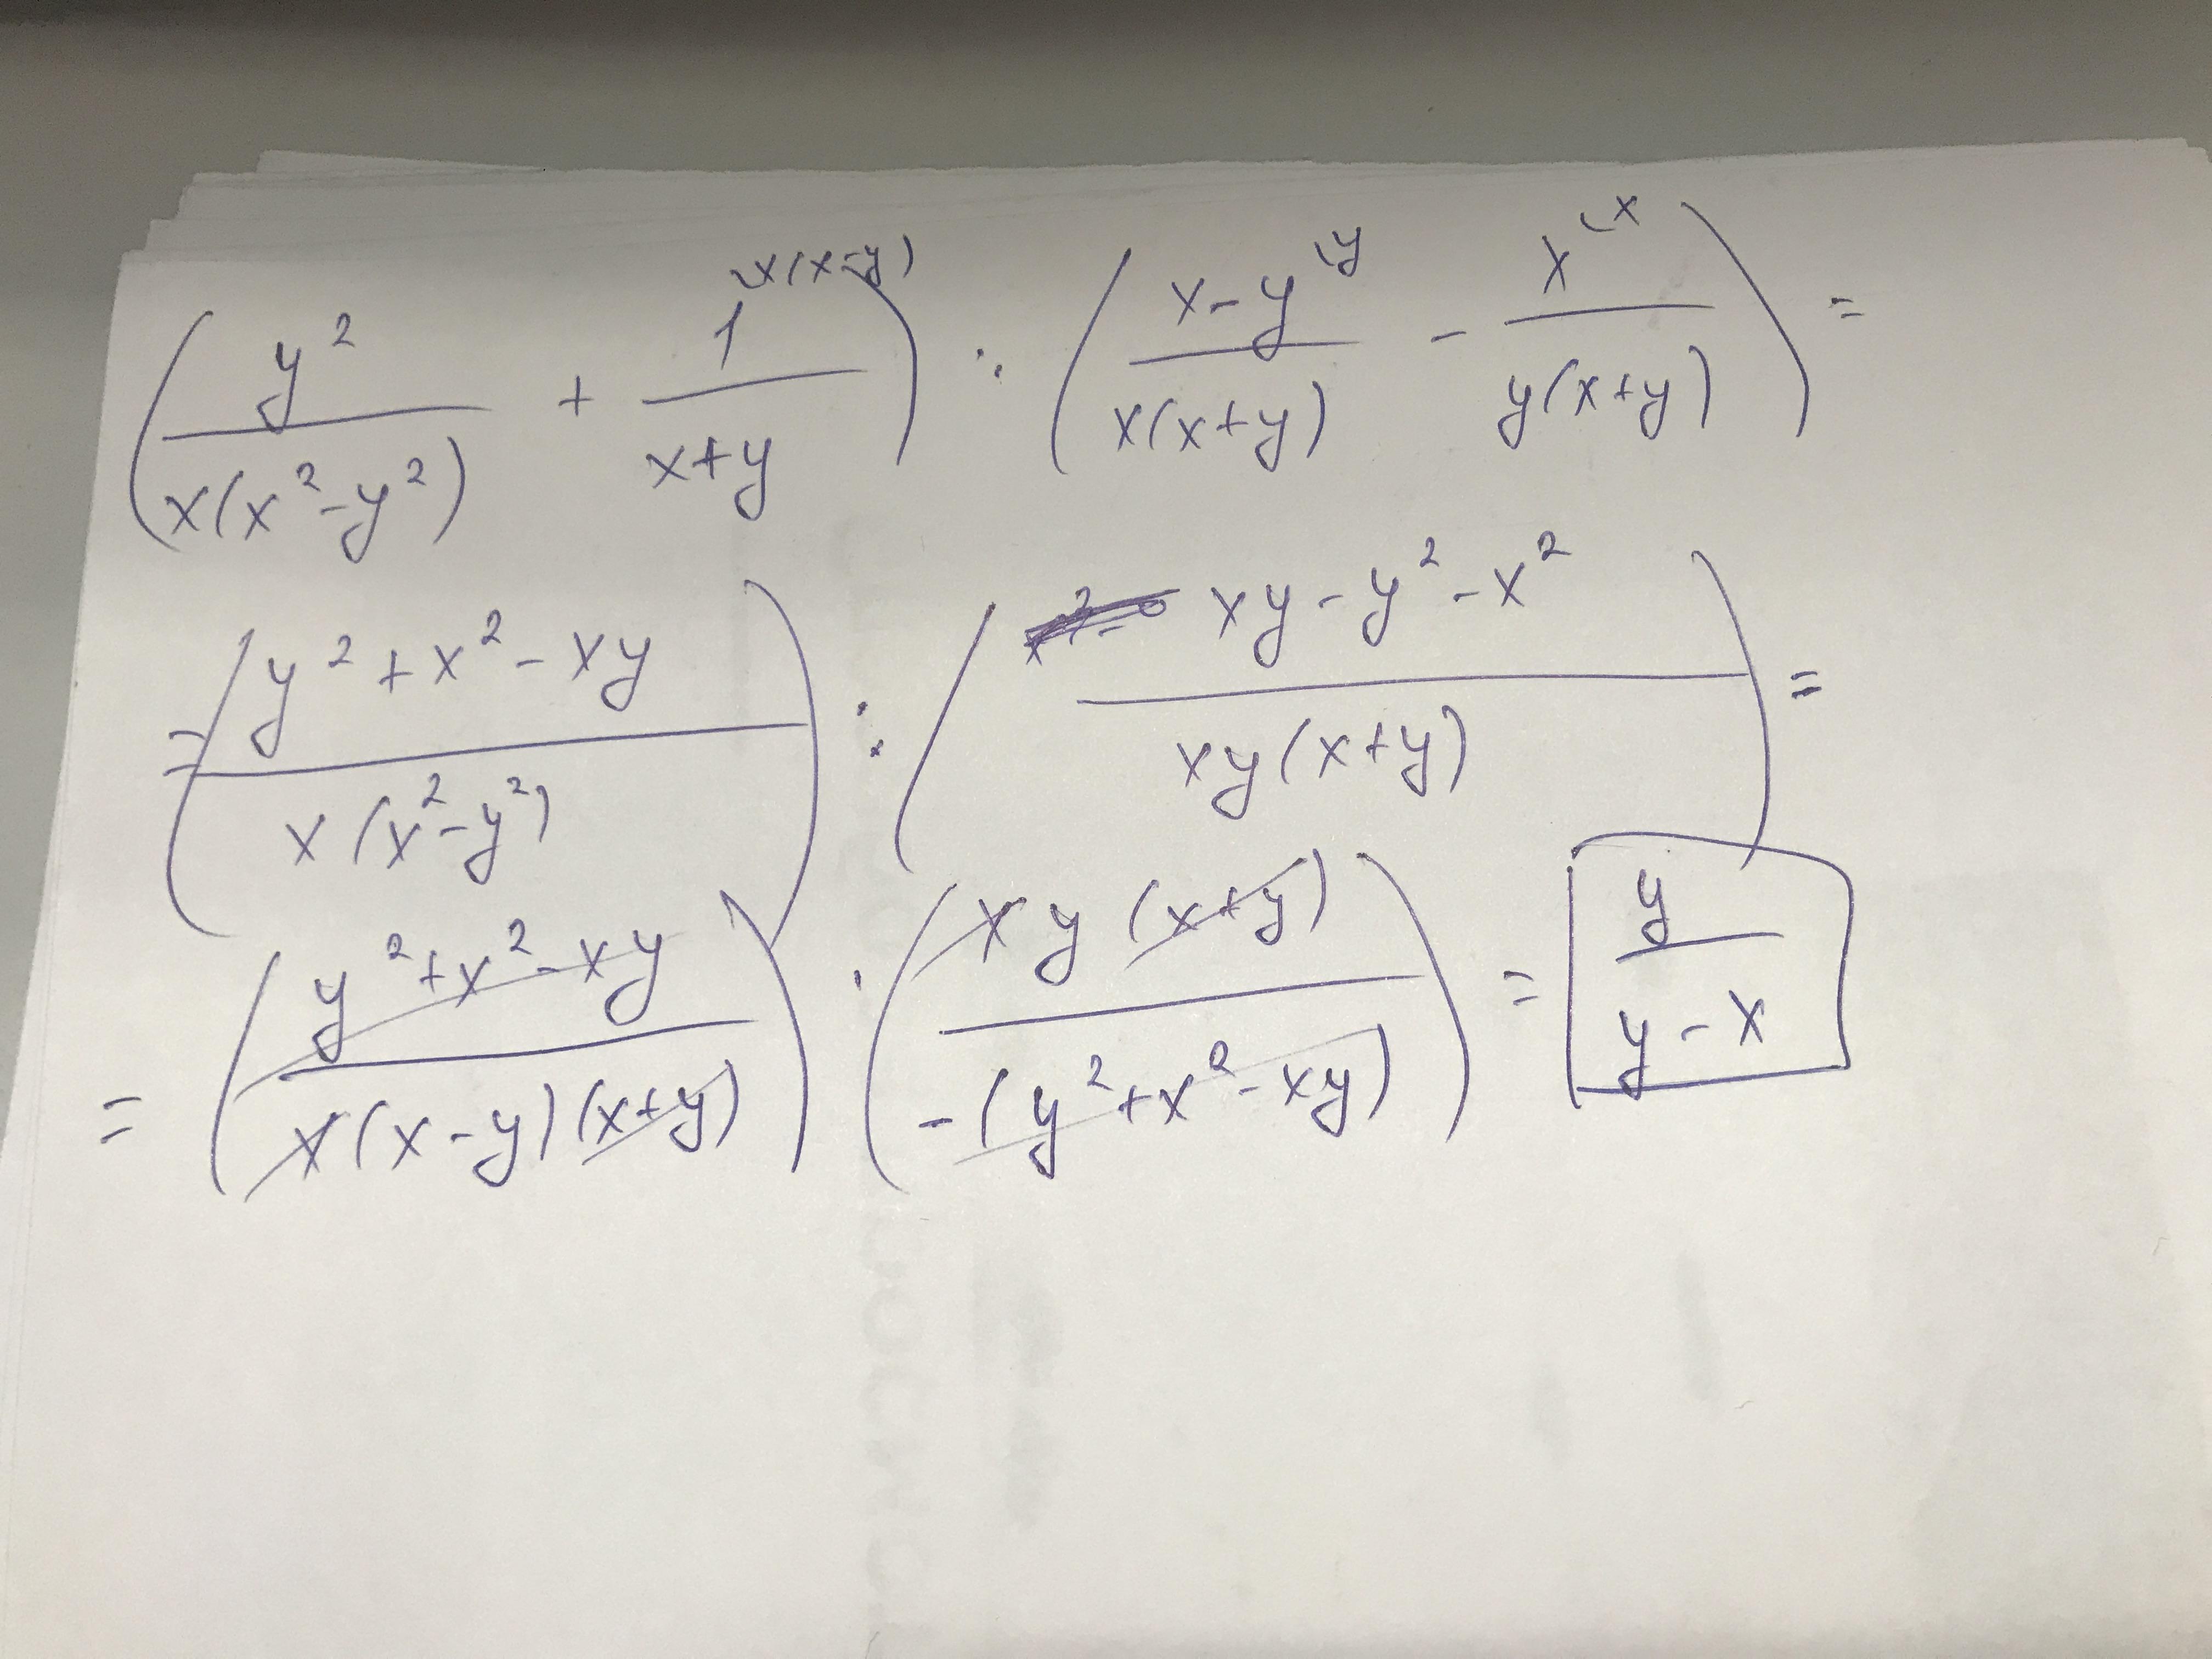 (y²/(x(x²-y²)) + 1^(x(x-y))/(x+y)) : ((x-y)^(y)/(x(x+y)) - x^(x)/(y(x+y))) =
= ((y²+x²-xy)/(x(x²-y²))) : ((xy-y²-x²)/(xy(x+y))) =
= ((y²+x²-xy)/(x(x-y)(x+y))) · ((xy(x+y))/(-(y²+x²-xy))) = y/(y-x)